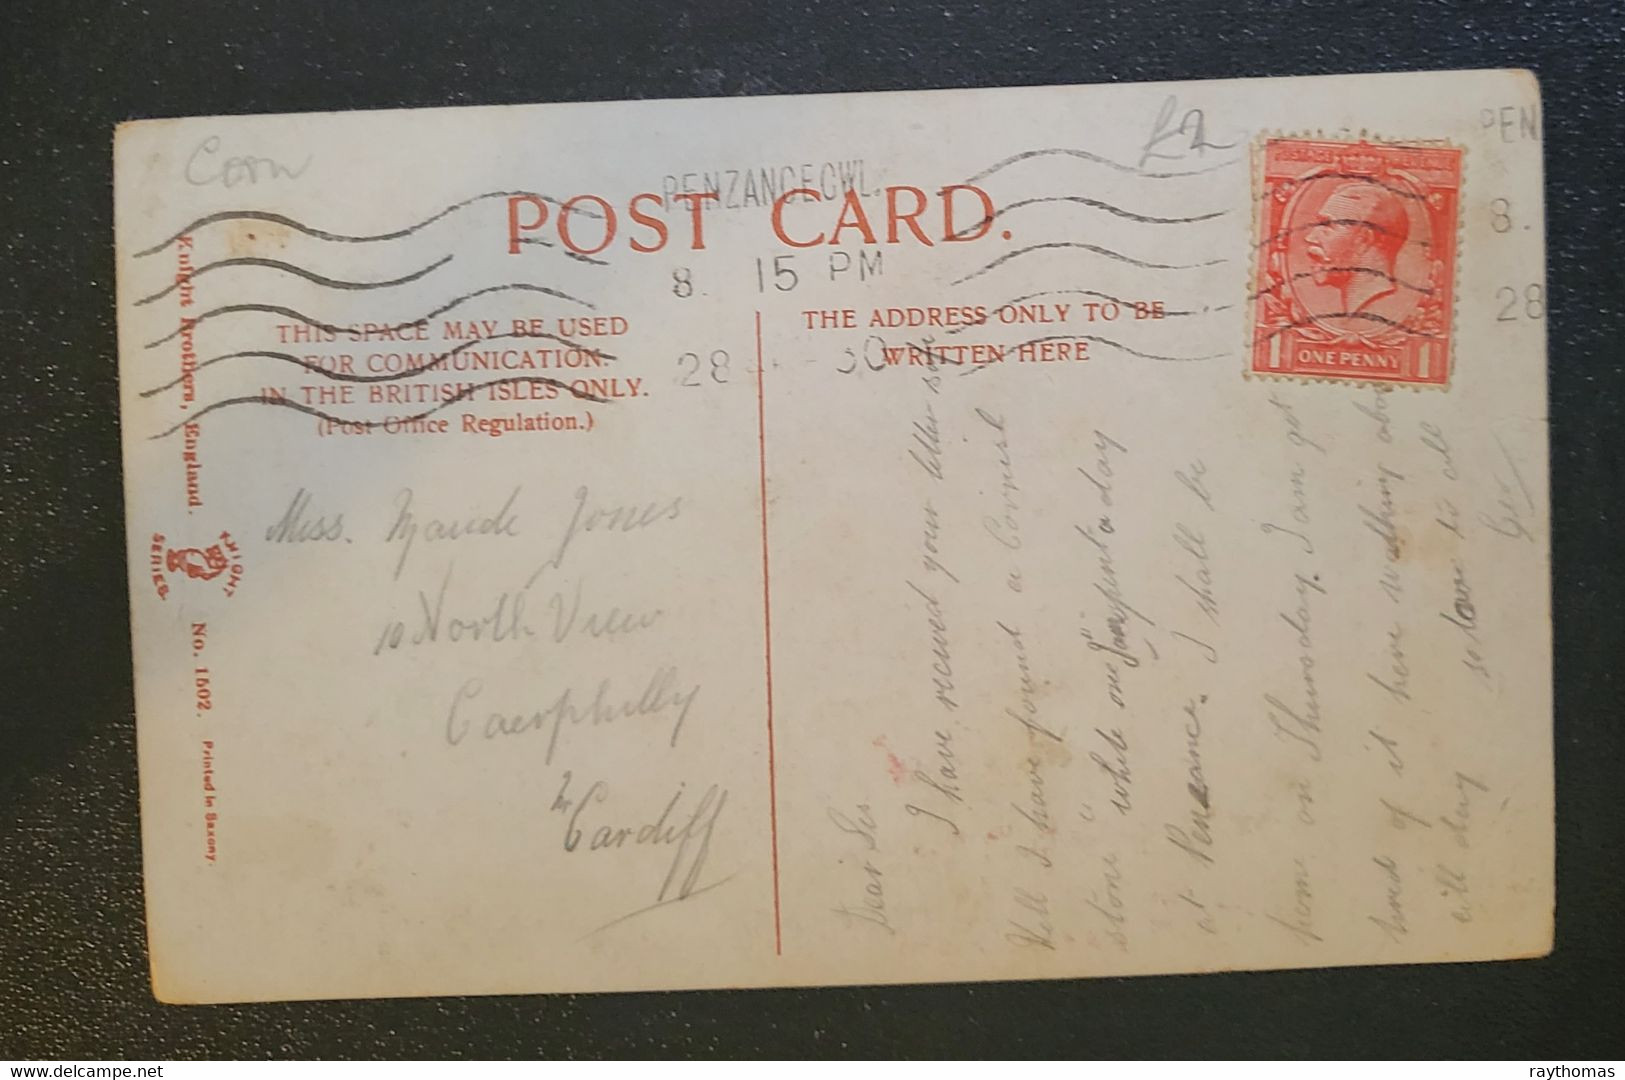 Corn
£2
PENZANCE CWL.
8. 15 PM
28
30
PEN
8.
28
POST CARD.
THIS SPACE MAY BE USED
FOR COMMUNICATION.
IN THE BRITISH ISLES ONLY.
(Post Office Regulation.)
THE ADDRESS ONLY TO BE
WRITTEN HERE
POSTAGE REVENUE
1 ONE PENNY 1
Knight Brothers, England.
KNIGHT
SERIES
No. 1502. Printed in Saxony.
Miss. Maude Jones
10 North View
Caerphilly
Nr Cardiff
Dear Sis
I have received your letter
Well I have found a Cornish
stone while on
at Penzance. I shall be
home on Thursday. I am got
tired of it here
all day so to all
Geo
delcampe.net
raythomas